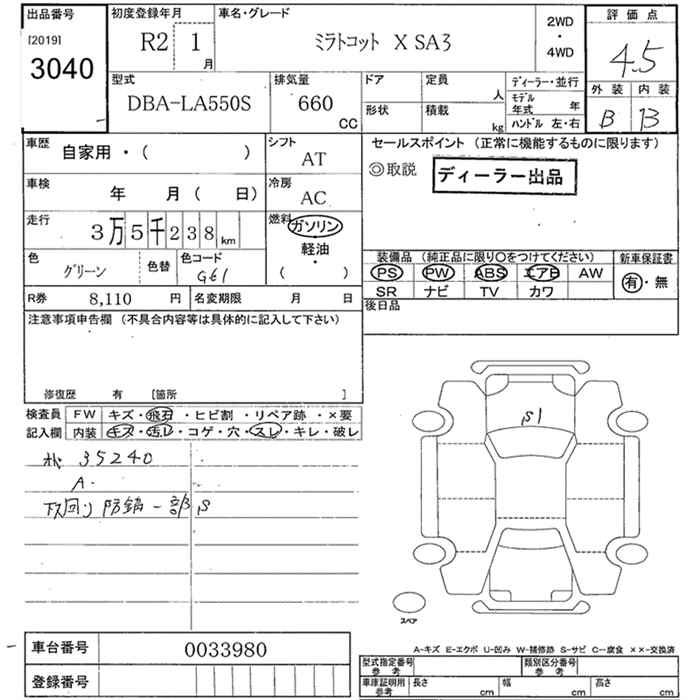 出品番号 初度登録年月 車名・グレード 2WD ・ 4WD 評価点
[2019] 3040 R2 1月 ミラトコット X SA3 4.5
型式 排気量 ドア 定員 人 ディーラー・並行 外装 内装
DBA-LA550S 660 CC 形状 積載 kg モデル年式 年 ハンドル 左・右 B B
車歴 自家用・( ) シフト AT セールスポイント (正常に機能するものに限ります)
◎取説 ディーラー出品
車検 年 月( 日) 冷房 AC
走行 3万5千238km 燃料 ガソリン 軽油・( )
色 グリーン 色替 色コード G61
装備品 (純正品に限り○をつけてください) 新車保証書
PS PW ABS エアB AW 有・無
SR ナビ TV カワ
R券 8,110 円 名変期限 月 日 後日品
注意事項申告欄 (不具合内容等は具体的に記入して下さい)
修復歴 有 [箇所 ]
検査員 FW キズ・飛石・ヒビ割・リペア跡・×要
記入欄 内装 キズ・汚レ・コゲ・穴・スレ・キレ・破レ
35240
A.
下回り防錆一部S
S1
スペア
車台番号 0033980
登録番号
A-キズ E-エクボ U-凹み W-補修跡 S-サビ C-腐食 ××-交換済
型式指定番号 参考 類別区分番号 参考
車庫証明用 参考 長さ cm 幅 cm 高さ cm